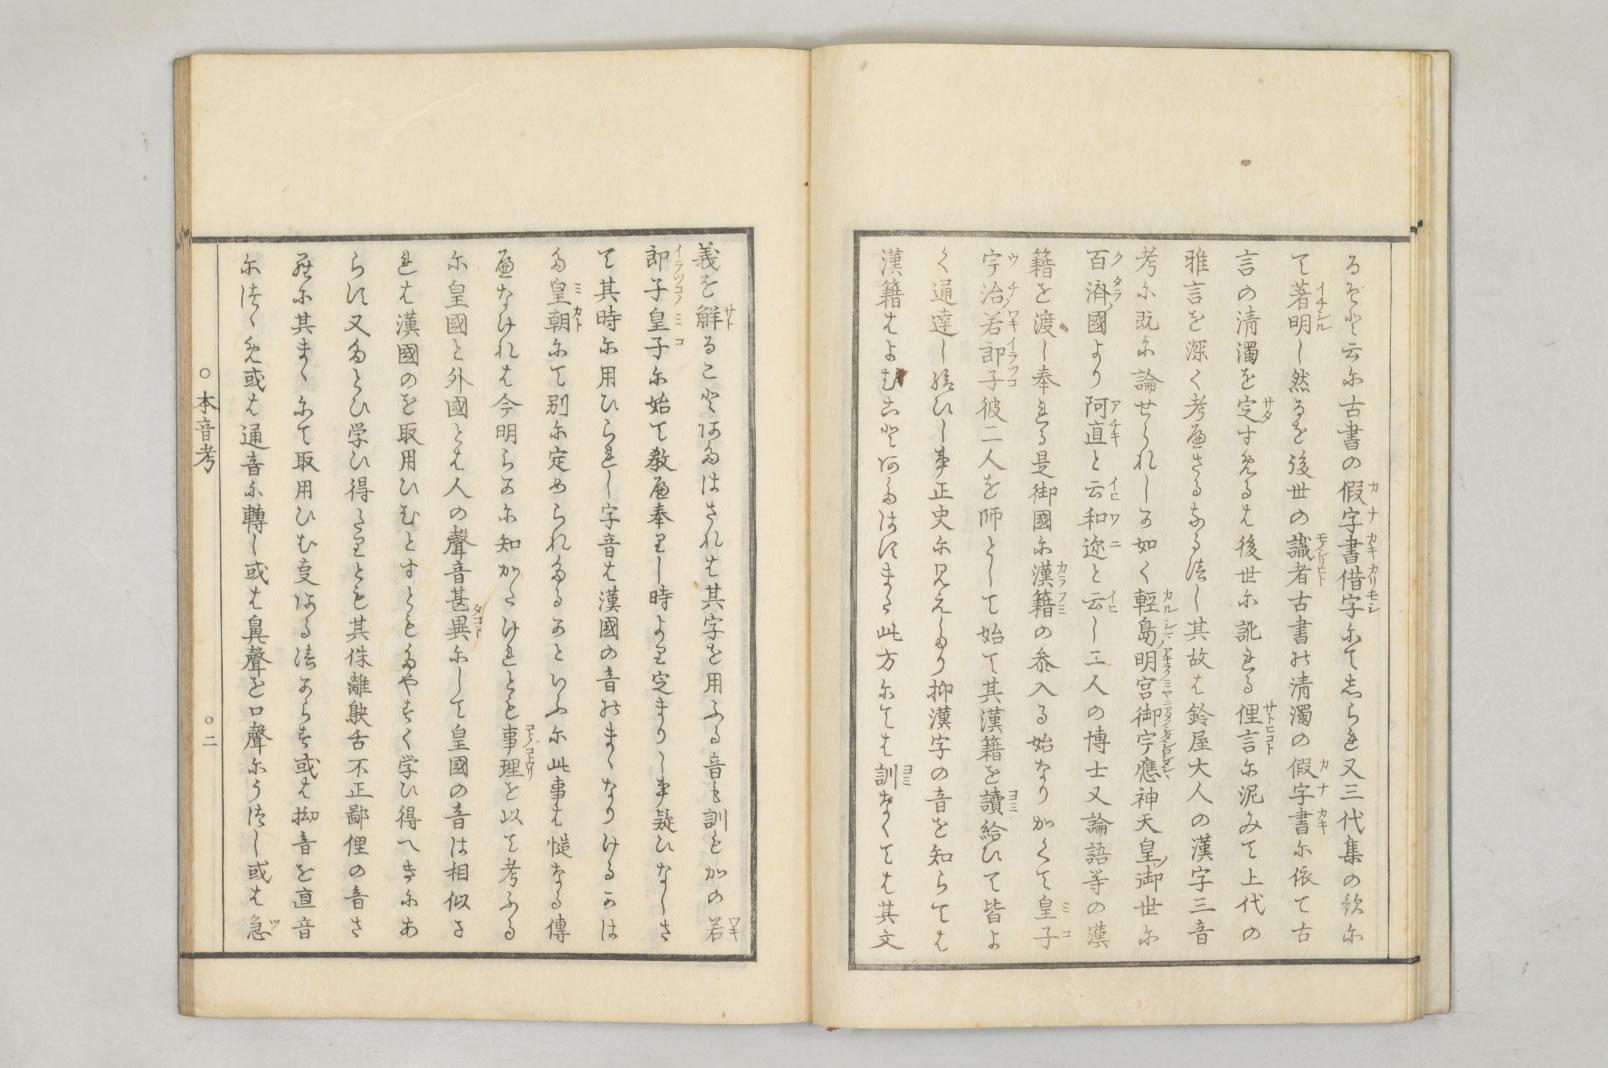 るぞと云に古書の假字書借字にてしられ又三代集の歌に
て著明し然るを後世の識者古書の清濁の假字書に依て古
言の清濁を定すめるは後世に訛れる俚言に泥みて上代の
雅言を深く考へざるなる徒し其故は鈴屋大人の漢字三音
考に既に論せられしか如く輕島明宮御宇應神天皇御世に
百濟國より阿直と云和迩と云し二人の博士又論語等の漢
籍を渡し奉れる是御國に漢籍の參入る始なりかくて皇子
宇治若郎子彼二人を師として始て其漢籍を讀給ひて皆よ
く通達し給ひし事正史に見えたり抑漢字の音を知らては
漢籍はよむこと阿たはすまた此方にては訓なくては其文
義を解ること阿たはされは其字を用ふる音も訓もかの若
郎子皇子に始て教へ奉りし時より定まりし事疑ひなしさ
て其時に用ひられし字音は漢國の音のまゝなりけるかは
た皇朝にて別に定められたるかといふに此事は慥なる傳
へなけれは今明らかに知かたけれとも事理を以て考ふる
に皇國と外國とは人の聲音甚異にして皇國の音は相似さ
れは漢國のを取用ひむとすとも たやすく学ひ得へきにあ
らす又たとひ学ひ得たりとも其侏離鴃舌不正鄙俚の音さ
に其まゝにて取用ひむ 或は拗音を直音
に 或は通音に轉し或は鼻聲を口聲にうつし或は急
○本音考
○二